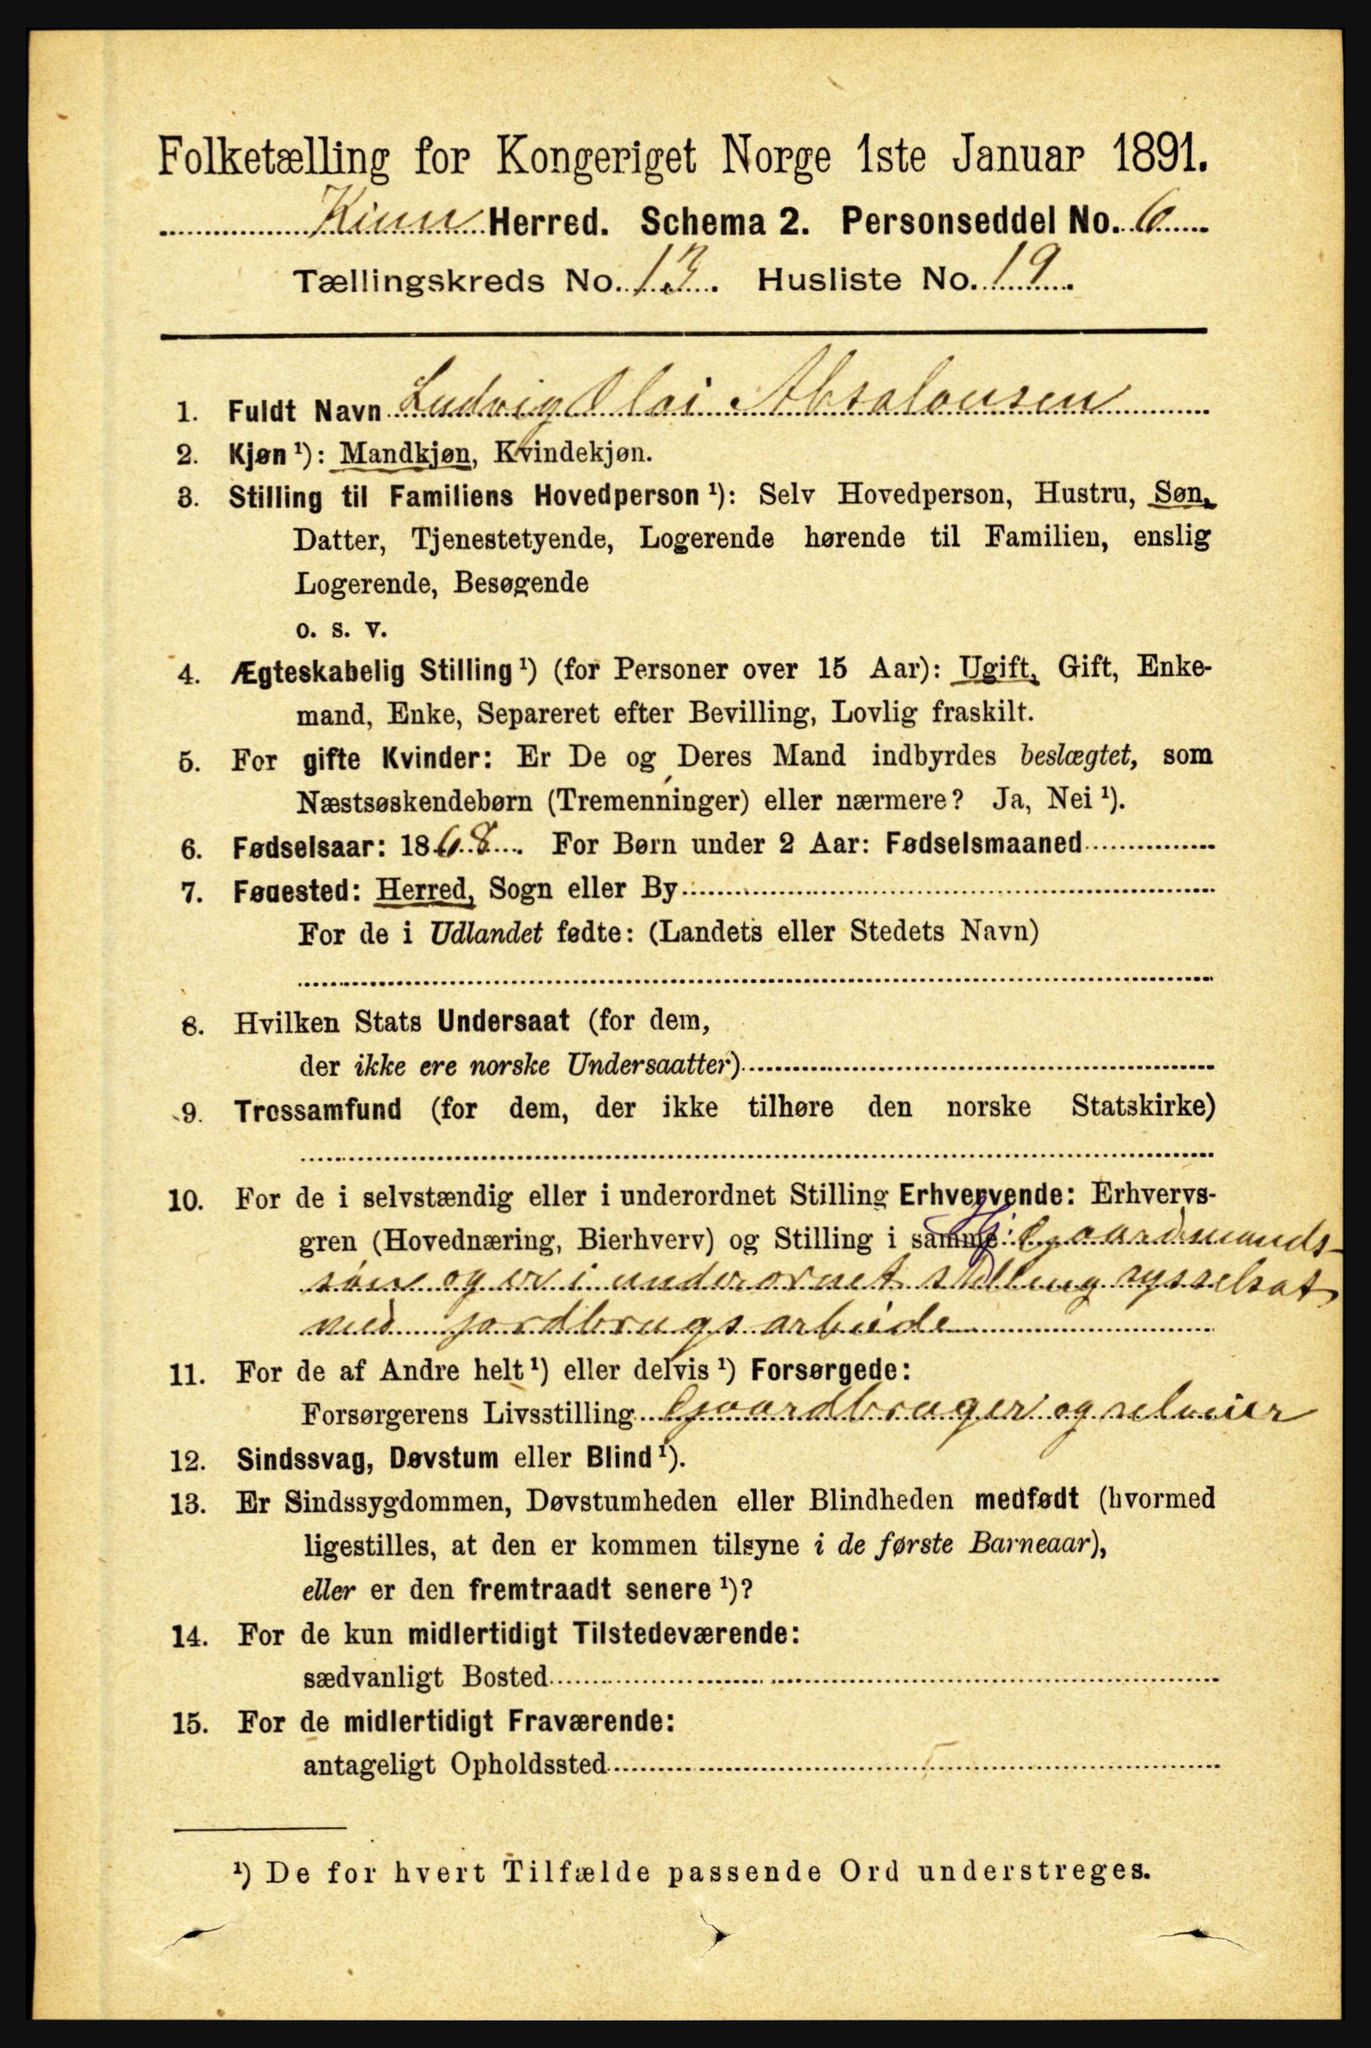 Folketælling for Kongeriget Norge 1ste Januar 1891.
Kinn Herred. Schema 2. Personseddel No. 6
Tællingskreds No. 13. Husliste No. 19.
1. Fuldt Navn Ludvig Olai Absalonsen
2. Kjøn ¹): Mandkjøn, Kvindekjøn.
3. Stilling til Familiens Hovedperson ¹): Selv Hovedperson, Hustru, Søn,
Datter, Tjenestetyende, Logerende hørende til Familien, enslig
Logerende, Besøgende
o. s. v.
4. Ægteskabelig Stilling ¹) (for Personer over 15 Aar): Ugift, Gift, Enke-
mand, Enke, Separeret efter Bevilling, Lovlig fraskilt.
5. For gifte Kvinder: Er De og Deres Mand indbyrdes beslægtet, som
Næstsøskendebørn (Tremenninger) eller nærmere? Ja, Nei ¹).
6. Fødselsaar: 1868. For Børn under 2 Aar: Fødselsmaaned
7. Fødested: Herred, Sogn eller By
For de i Udlandet fødte: (Landets eller Stedets Navn)
8. Hvilken Stats Undersaat (for dem,
der ikke ere norske Undersaatter)
9. Trossamfund (for dem, der ikke tilhøre den norske Statskirke)
10. For de i selvstændig eller i underordnet Stilling Erhvervende: Erhvervs-
gren (Hovednæring, Bierhverv) og Stilling i samme: Gaardmands-
søn og er i underornet stilling sysselsat
med jordbrugsarbeide
11. For de af Andre helt ¹) eller delvis ¹) Forsørgede:
Forsørgerens Livsstilling Gaardbruger og selveier
12. Sindssvag, Døvstum eller Blind ¹).
13. Er Sindssygdommen, Døvstumheden eller Blindheden medfødt (hvormed
ligestilles, at den er kommen tilsyne i de første Barneaar),
eller er den fremtraadt senere ¹)?
14. For de kun midlertidigt Tilstedeværende:
sædvanligt Bosted
15. For de midlertidigt Fraværende:
antageligt Opholdssted
¹) De for hvert Tilfælde passende Ord understreges.